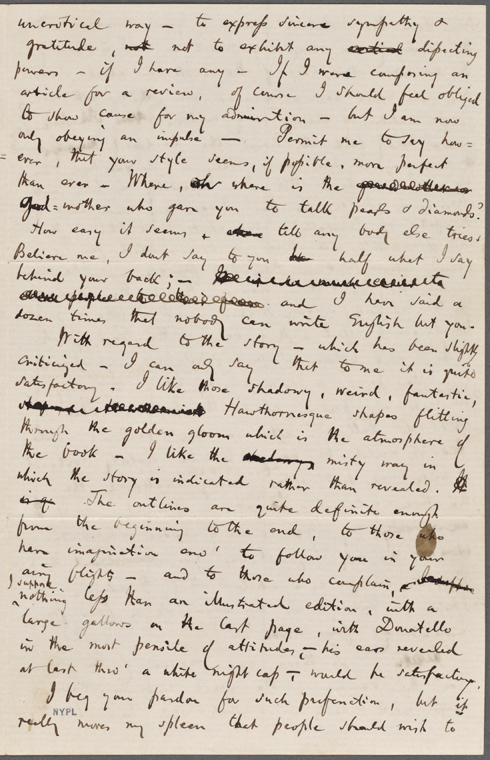 uncritical way — to express sincere sympathy &
gratitude, not not to exhibit any critical dissecting
powers — if I have any — If I were composing an
article for a review, of course I should feel obliged
to show cause for my admiration — but I am now
only obeying an impulse — Permit me to say how=
ever, that your style seems, if possible, more perfect
than ever — Where, oh where is the
God=mother who gave you to talk pearls & diamonds?
How easy it seems, & when tell any body else tries.
Believe me, I dont say to you half what I say
behind your back; —
and I have said a
dozen times that nobody can write English but you.
With regard to the story — which has been slightly
criticized — I can only say that to me it is quite
satisfactory. I like those shadowy, weird, fantastic,
Hawthornesque shapes flitting
through the golden gloom which is the atmosphere of
the book — I like the misty way in
which the story is indicated rather than revealed. It
is q The outlines are quite definite enough
from the beginning to the end, to those who
have imagination eno' to follow you in your
airy flights — and to those who complain,
I suppose
nothing less than an illustrated edition, with a
large gallows on the last page, with Donatello
in the most pensile of attitudes, — his ears revealed
at last thro' a white night cap, — would be satisfactory.
I beg your pardon for such profanation, but it
really moves my spleen that people should wish to
NYPL